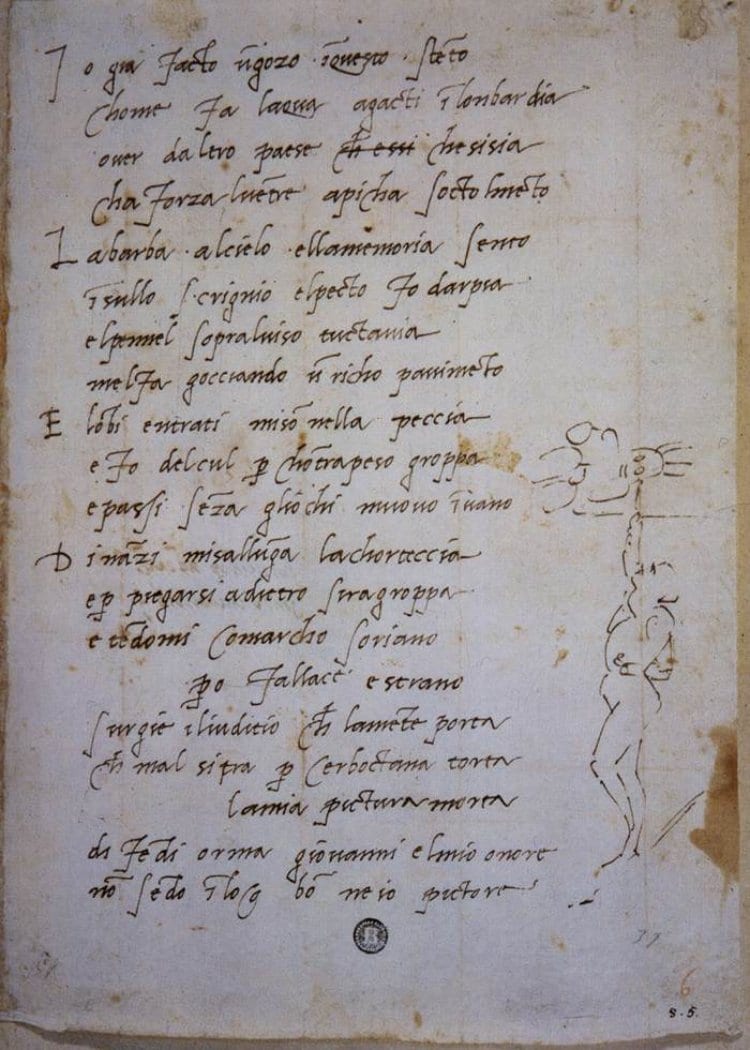 Io gia facto ũgozo ĩquesto stẽto
chome fa laqua agacti ĩlonbardia
over daltro paese ch̃ essi chesisia
chaforza lvẽtre apicha socto lmẽto
Labarba alcielo ellamemoria sento
ĩsullo scrignio elpecto fo darpia
elpennel sopralviso tuctavia
melfa gocciando ũ richo pavimẽto
E lõbi entrati misõ nella peccia
e fo delcul p̱ chõtrapeso groppa
e passi sẽza gliochi muovo ĩvano
Dinãzi misallũga lachorteccia
e p̱ piegarsi adietro siragroppa
e tẽdomi comarcho soriano
po fallace e strano
surgie iliuditio ch̃ lamẽte porta
ch̃ mal si tra p̱ cerboctana torta
lamia pictura morta
di fẽdi orma giovanni elmio onore
nõ sẽdo ĩloq bõ ne io pictore
6
8.5.